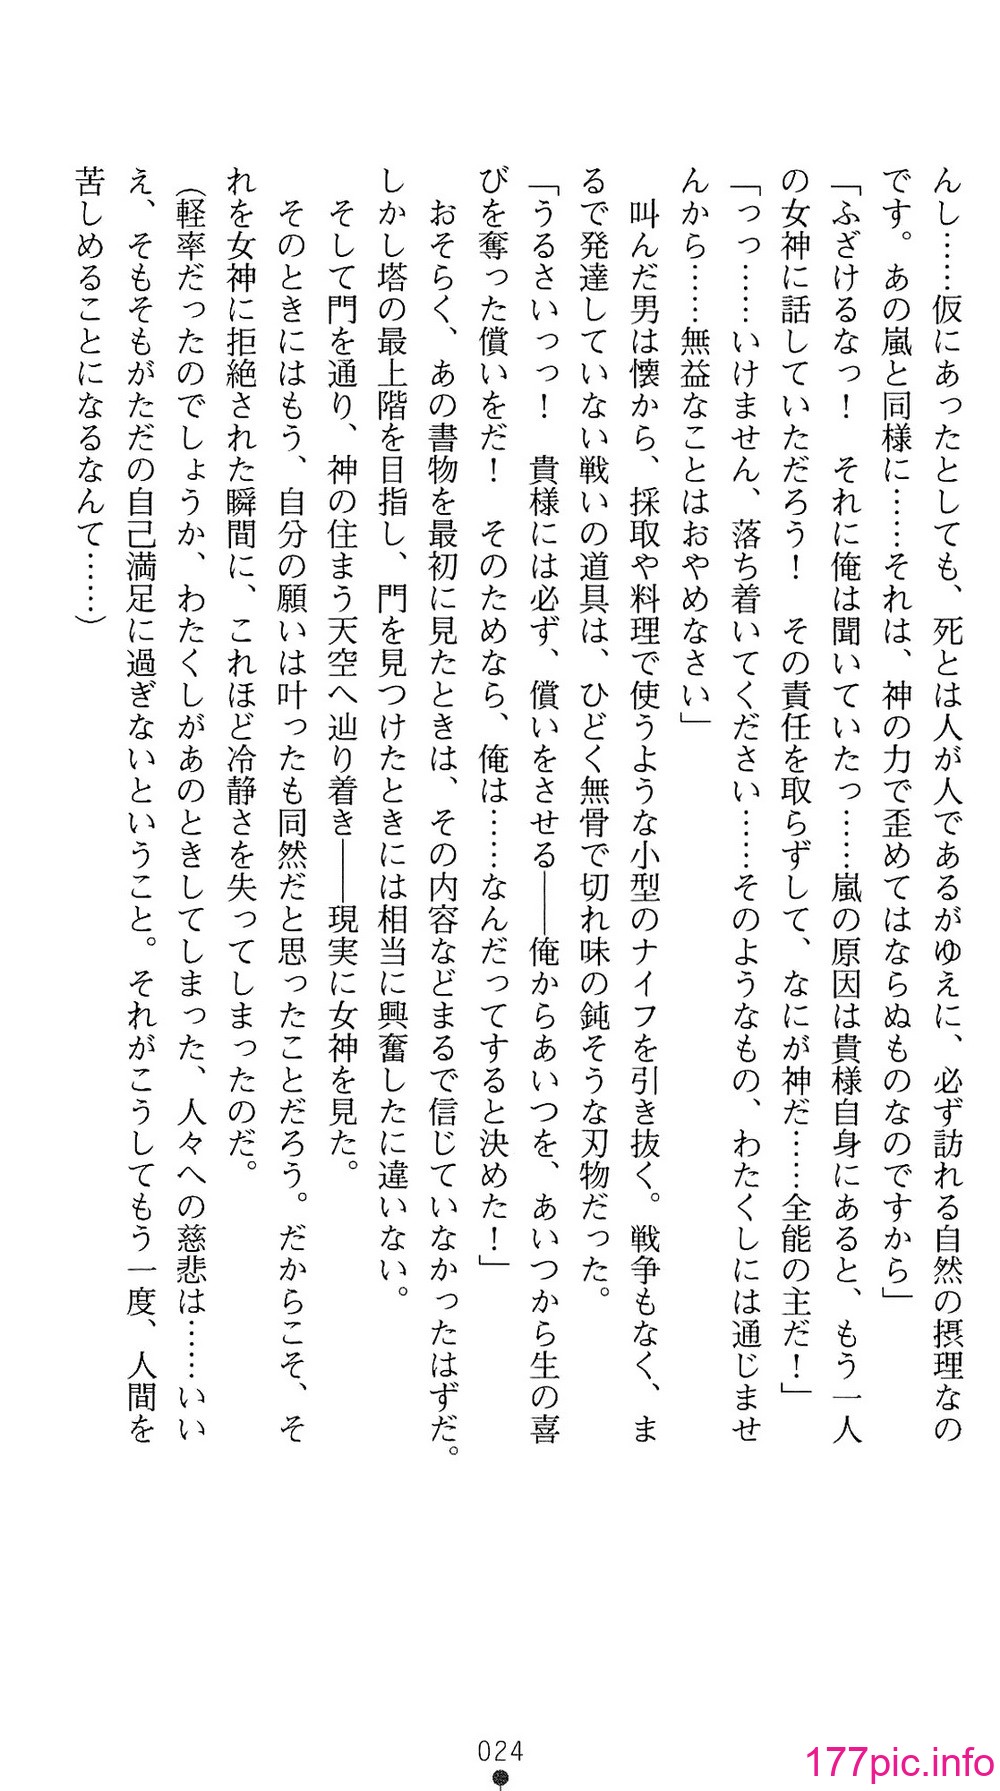 んし……仮にあったとしても、死とは人が人であるがゆえに、必ず訪れる自然の摂理なの
です。あの嵐と同様に……それは、神の力で歪めてはならぬものなのですから」
「ふざけるなっ！　それに俺は聞いていたっ……嵐の原因は貴様自身にあると、もう一人
の女神に話していただろう！　その責任を取らずして、なにが神だ……全能の主だ！」
「っっ……いけません、落ち着いてください……そのようなもの、わたくしには通じませ
んから……無益なことはおやめなさい」
　叫んだ男は懐から、採取や料理で使うような小型のナイフを引き抜く。戦争もなく、ま
るで発達していない戦いの道具は、ひどく無骨で切れ味の鈍そうな刃物だった。
「うるさいっっ！　貴様には必ず、償いをさせる――俺からあいつを、あいつから生の喜
びを奪った償いをだ！　そのためなら、俺は……なんだってすると決めた！」
　おそらく、あの書物を最初に見たときは、その内容などまるで信じていなかったはずだ。
しかし塔の最上階を目指し、門を見つけたときには相当に興奮したに違いない。
　そして門を通り、神の住まう天空へ辿り着き――現実に女神を見た。
　そのときにはもう、自分の願いは叶ったも同然だと思ったことだろう。だからこそ、そ
れを女神に拒絶された瞬間に、これほど冷静さを失ってしまったのだ。
（軽率だったのでしょうか、わたくしがあのときしてしまった、人々への慈悲は……いい
え、そもそもがただの自己満足に過ぎないということ。それがこうしてもう一度、人間を
苦しめることになるなんて……）
024
177pic.info